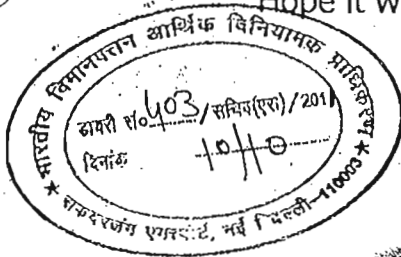 Hope it w
भारतीय विमानपत्तन आर्थिक विनियामक प्राधिकरण
डायरी सं० 403 /सचिव(एरा)/201
दिनांक 10/10
★ सफदरजंग एयरपोर्ट, नई दिल्ली-110003 ★